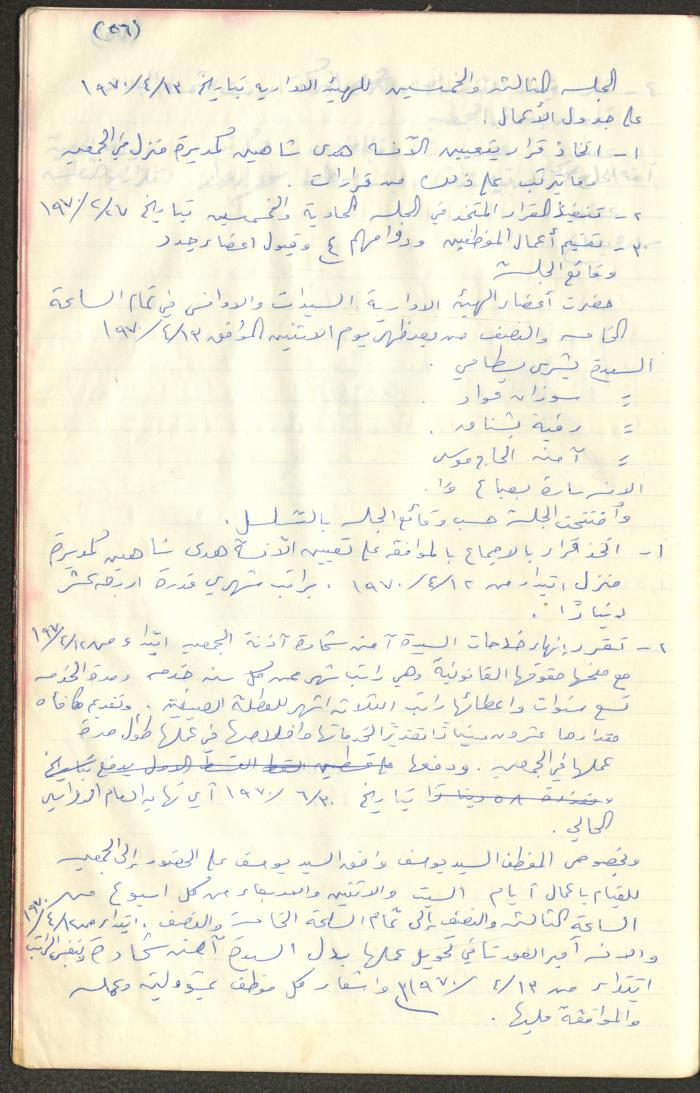 (٥٦)
الجلسه الثالثه والخمسين للهيئه الاداريه بتاريخ ١٩٧٠/٤/١٣
على جدول الأعمال :
١- اتخاذ قرار بتعيين الآنسه هدى شاهين كمديرة منزل في الجمعيه
وما يترتب على ذلك من قرارات .
٢- تنفيذ القرار المتخذ في الجلسه الحادية والخمسين بتاريخ ١٩٧٠/٢/٢٧
٣- تقسيم أعمال الموظفين ودوامهم ٤ وقبول اعضاء جدد
وقائع الجلسة
حضرت أعضاء الهيئه الادارية السيدات والاوانس في تمام الساعة
الخامسه والنصف من بعد ظهر يوم الاثنين الموافق ١٩٧٠/٤/١٣
السيدة يشرى بسطامي .
= سوزان عواد .
= رقية بشناق .
= آمنه الحاج موسى
الانسه سارة بصباع
وافتتحت الجلسة حسب وقائع الجلسه بالتسلسل .
١- اتخذ قرار بالاجماع بالموافقه على تعيين الآنسة هدى شاهين كمديرة
منزل ابتداء من ١٩٧٠/٤/١٢ . براتب شهري قدره اربعه عشر
دينارًا .
٢- تقرر إنهاء خدمات السيدة آمنه شحادة آذنة الجمعيه ابتداء من ١٩٧٠/٤/١٢
مع منحها حقوقها القانونية وهي راتب شهر عن كل سنه خدمه ومدة الخدمه
تسع سنوات واعطائها راتب الثلاثة اشهر للعطلة الصيفية . وتقديم مكافاه
مقدارها عشرون دينارًا تقديرًا لخدماتها واخلاصها في عملها طول مدة
عملها في الجمعيه . ودفعها على قسطين القسط الاول يدفع بتاريخ
بتاريخ ١٩٧٠/٦/٣٠ أي نهاية العام الدراسي
الحالي .
وبخصوص الموظف السيد يوسف وافق السيد يوسف على الحضور إلى الجمعيه
للقيام باعمال أيام السبت والاثنين والاربعاء من كل اسبوع من
الساعة الثالثه والنصف إلى تمام الساعة الخامسة والنصف ، ابتداء من ١٩٧٠/٤/١٢
والانسه أمير الصورتاني تحويل عملها بدل السيدة آمنه شحادة وبنفس الراتب
ابتداء من ١٩٧٠/٤/١٣ واشعار كل موظف بمسؤوليته وعمله
والموافقة عليها .